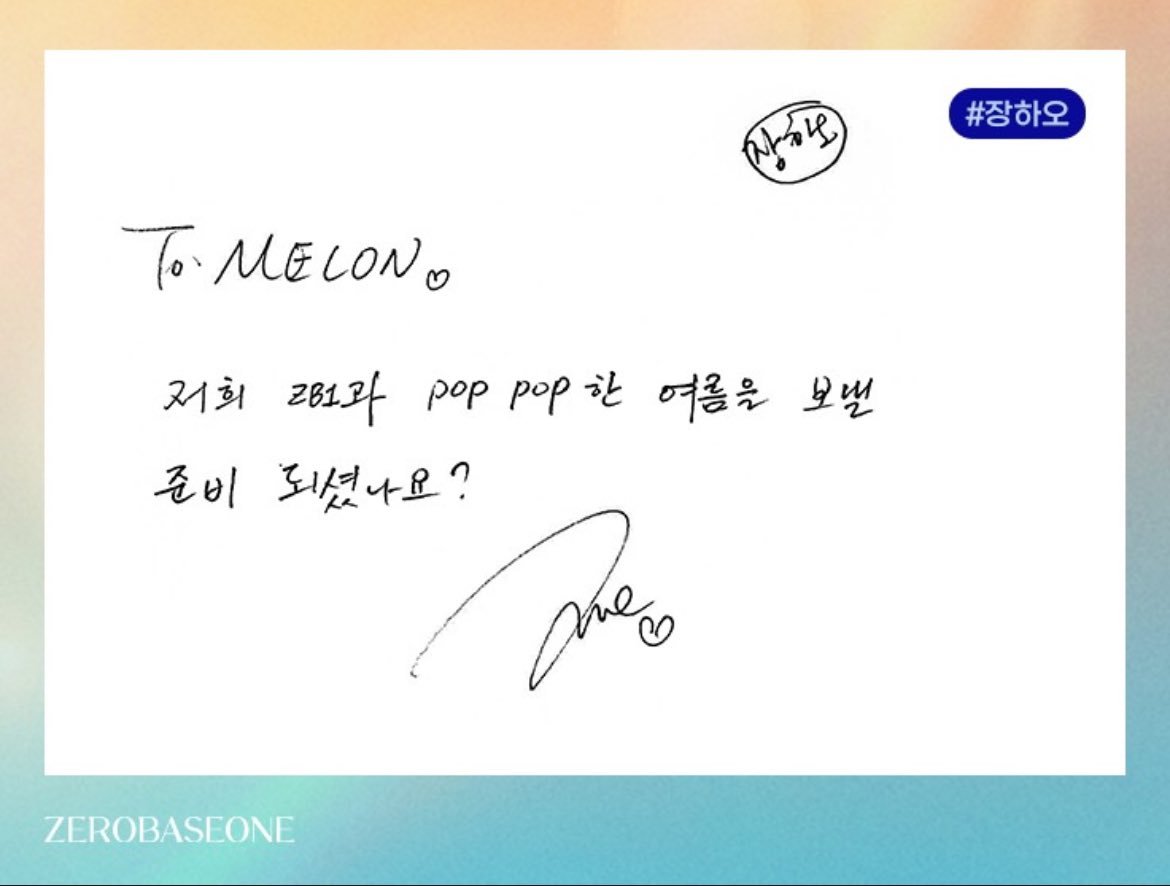 #장하오
장하오
To. MELON♡
저희 ZB1과 pop pop한 여름을 보낼
준비 되셨나요?
ZEROBASEONE